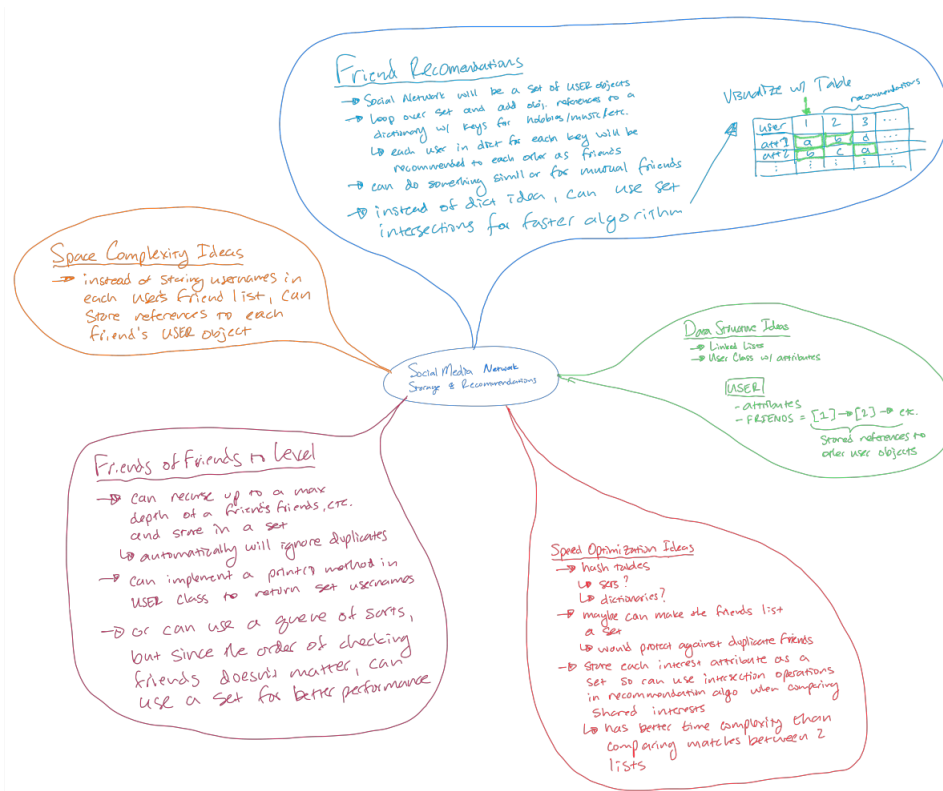 Friend Recomendations
→ Social Network will be a set of USER objects
→ loop over set and add obj. references to a
dictionary w/ keys for hobbies/music/etc.
↳ each user in dict for each key will be
recommended to each other as friends
→ can do something similar for mutual friends
→ instead of dict idea, can use set
intersections for faster algorithm
Visualize w/ Table
recommendations
user 1 2 3 ...
att1 a b d ...
att2 b c a ...
⋮ ⋮ ⋮ ⋮
Space Complexity Ideas
→ instead of storing usernames in
each user's friend list, can
store references to each
friend's USER object
Social Media Network
Storage & Recommendations
Data Structure Ideas
→ Linked Lists
→ User Class w/ attributes
USER
- attributes
- FRIENDS = [1]→[2]→ etc.
Stored references to
other user objects
Friends of Friends to Level
→ can recurse up to a max
depth of a friend's friends, etc.
and store in a set
↳ automatically will ignore duplicates
→ can implement a print() method in
USER class to return set usernames
→ or can use a queue of sorts,
but since the order of checking
friends doesn't matter, can
use a set for better performance
Speed Optimization Ideas
→ hash tables
↳ sets?
↳ dictionaries?
→ maybe can make the friends list
a set
↳ would protect against duplicate friends
→ store each interest attribute as a
set so can use intersection operations
in recommendation algo when comparing
shared interests
↳ has better time complexity than
comparing matches between 2
lists